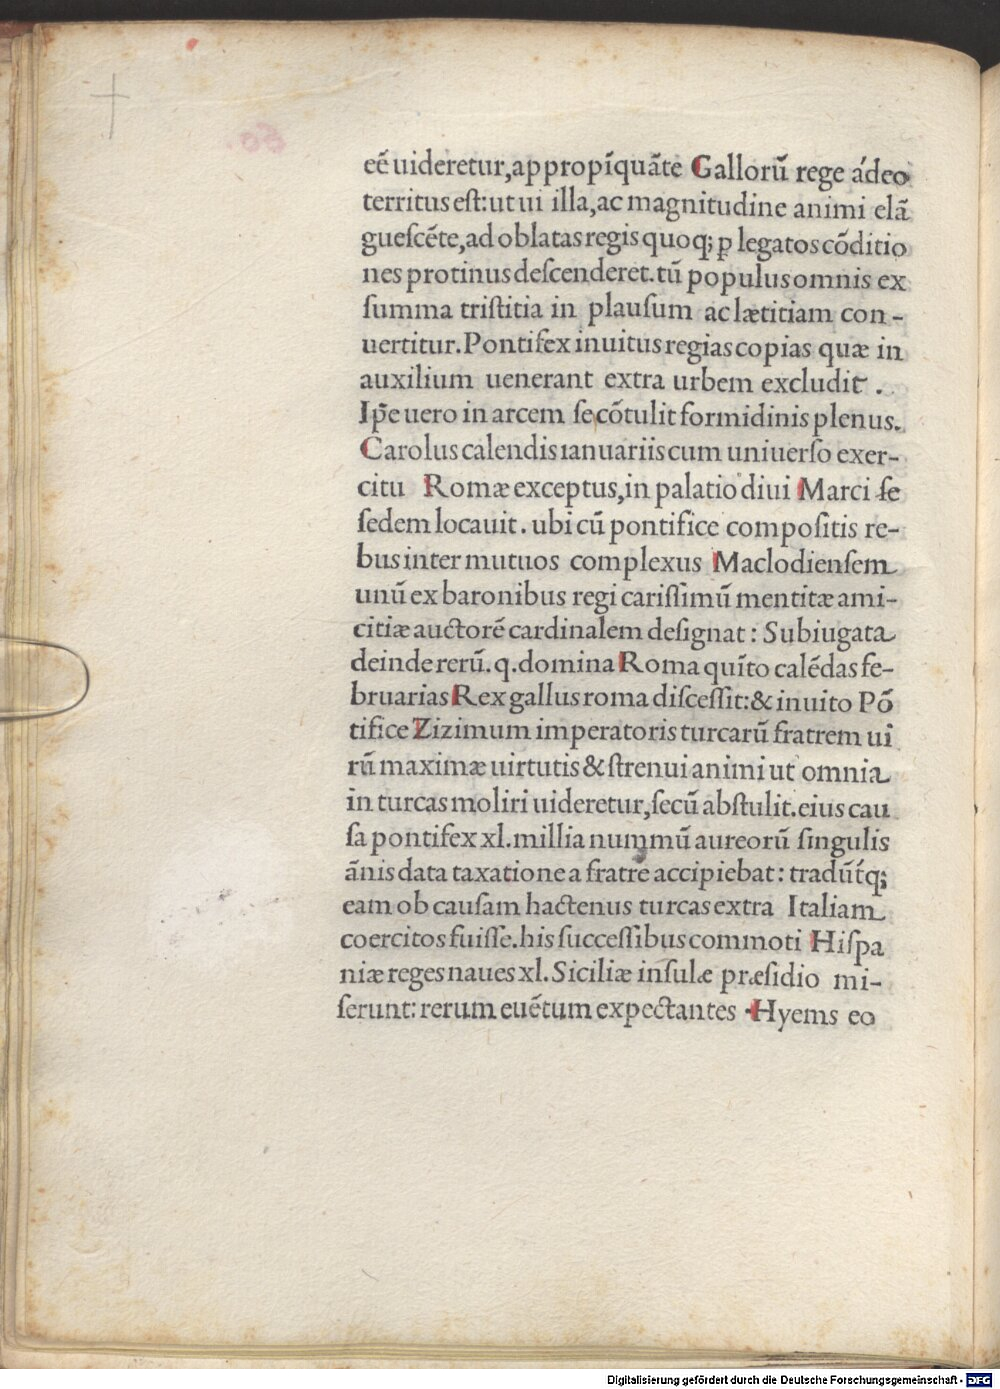 eē uideretur,appropīquāte Gallorū rege ádeo
territus eſt:ut ui illa,ac magnitudine animi elā
gueſcēte,ad oblatas regis quoq; ꝑ legatos cōditio
nes protinus deſcenderet.tū populus omnis ex
ſumma triſtitia in plauſum ac lætitiam con-
uertitur.Pontifex inuitus regias copias quæ in
auxilium uenerant extra urbem excludit .
Ip̄e uero in arcem ſe cōtulit formidinis plenus.
Carolus calendis ianuariis cum uniuerſo exer-
citu Romæ exceptus,in palatio diui Marci ſe
ſedem locauit. ubi cū pontifice compoſitis re-
bus inter mutuos complexus Maclodienſem
unū ex baronibus regi cariſſimū mentitæ ami-
citiæ auctorē cardinalem deſignat : Subiugata
deinde rerū. q. domina Roma quīto calēdas fe-
bruarias Rex gallus roma diſceſſit:& inuito Pō
tifice Zizimum imperatoris turcarū fratrem ui
rū maximæ uirtutis & ſtrenui animi ut omnia
in turcas moliri uideretur,ſecū abſtulit.eius cau
ſa pontifex xl.millia nummū aureorū ſingulis
ānis data taxatione a fratre accipiebat : tradūt́q;
eam ob cauſam hactenus turcas extra Italiam
coercitos fuiſſe.his ſucceſſibus commoti Hiſpa
niæ reges naues xl. Siciliæ inſulæ præſidio mi-
ſerunt: rerum euētum expectantes · Hyems eo
Digitalisierung gefördert durch die Deutsche Forschungsgemeinschaft - DFG